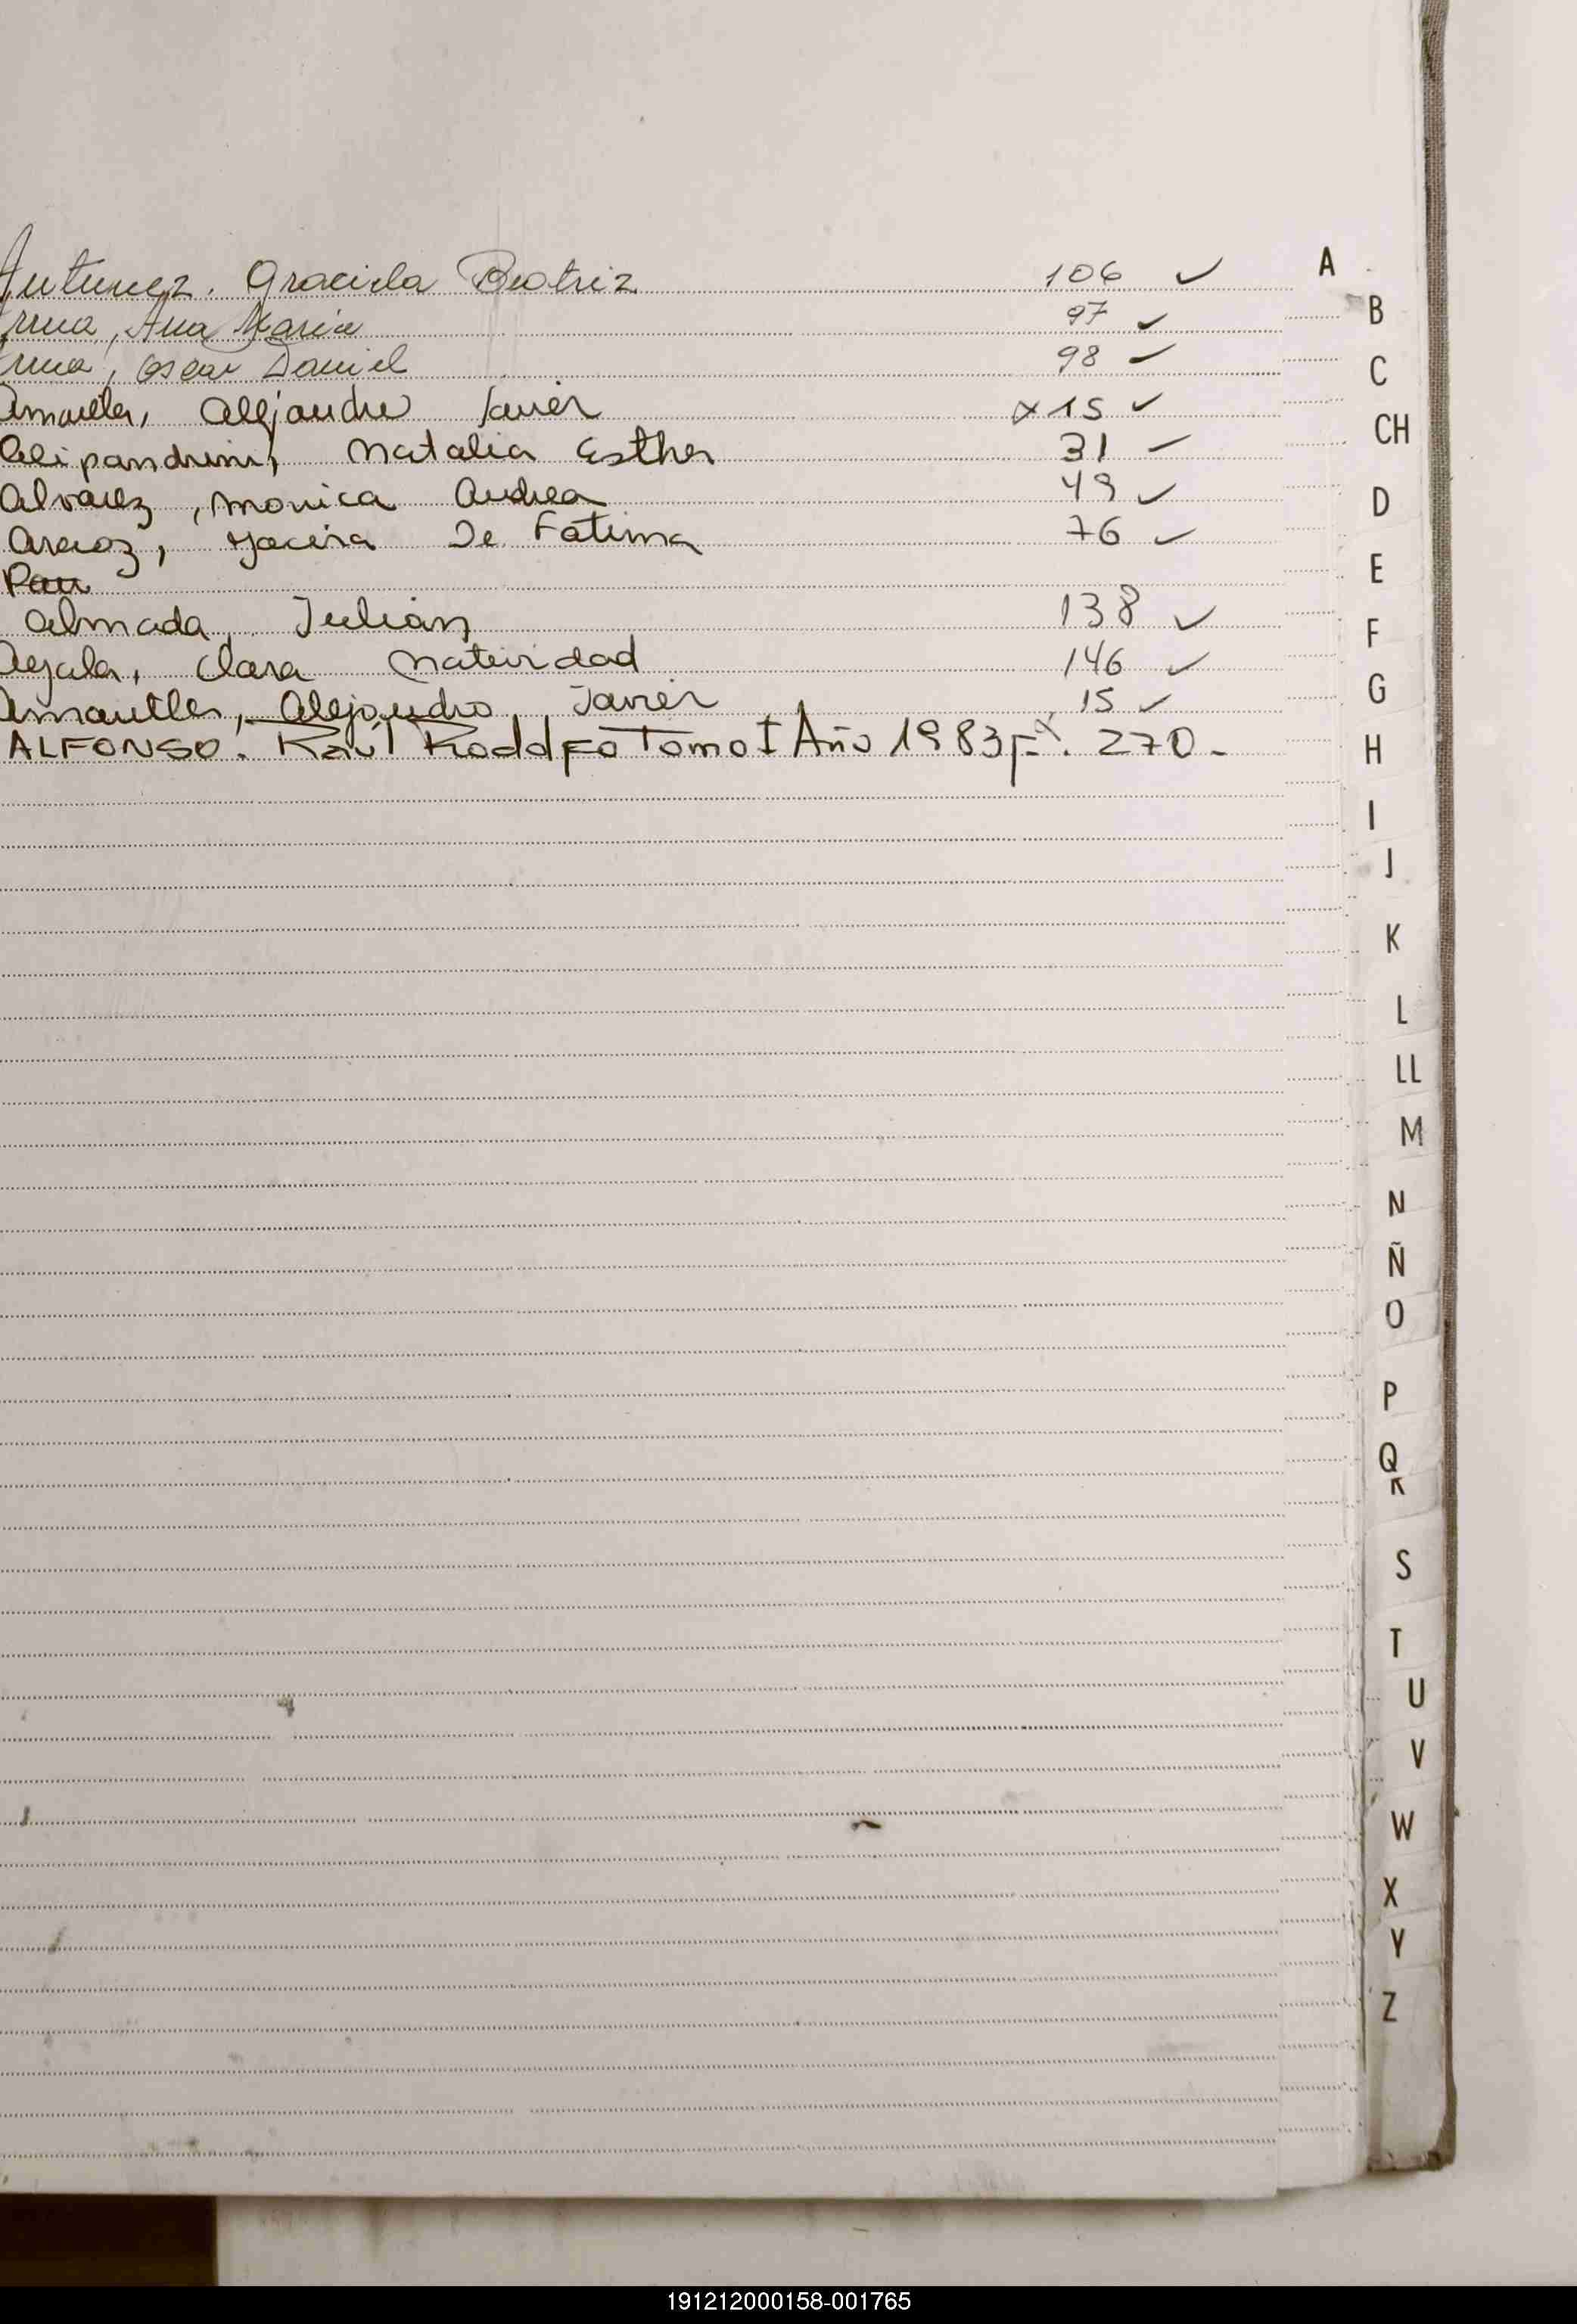 Antunez. Graciela Beatriz 106 ✓
Ana Maria 97 ✓
Oscar Daniel 98 ✓
Alejandro Javier x 15 ✓
Alipandrini, Natalia Esther 31 ✓
Alvarez, Monica Andrea 49 ✓
Araoz, Jacira De Fatima 76 ✓
Almada, Julian 138 ✓
Ayala, Clara Natividad 146 ✓
Alejandro, Javier 15 ✓
ALFONSO. Raúl Rodolfo Tomo I Año 1983 Fº. 270.
A
B
C
CH
D
E
F
G
H
I
J
K
L
LL
M
N
Ñ
O
P
Q
R
S
T
U
V
W
X
Y
Z
191212000158-001765